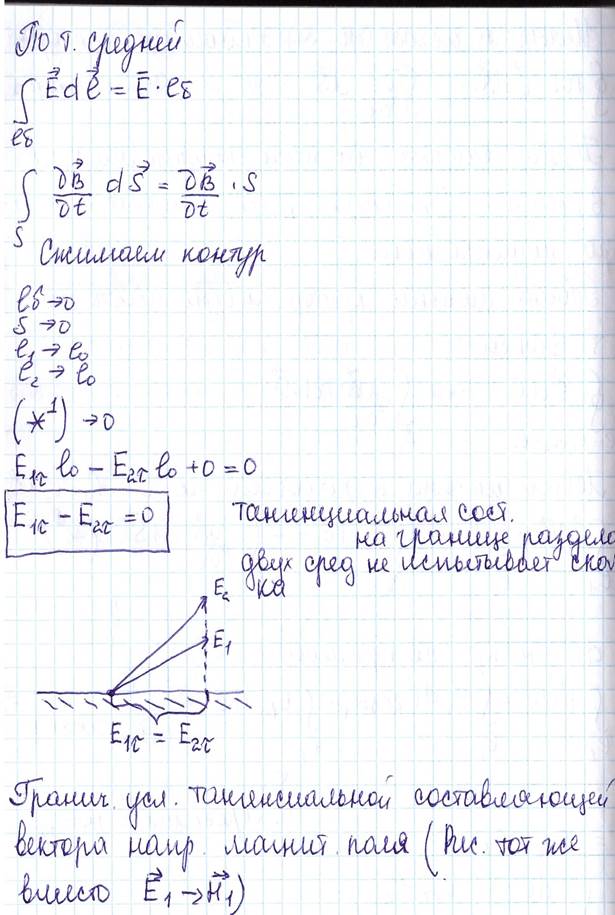 По т. средней
∫ E⃗ dl⃗ = Ē · lδ
lδ
∫ ∂B⃗/∂t dS⃗ = ∂B⃗/∂t · S
S
Сжимаем контур
lδ → 0
S → 0
l₁ → l₀
l₂ → l₀
(*¹) → 0
E₁τ l₀ − E₂τ l₀ + 0 = 0
E₁τ − E₂τ = 0
тангенциальная сост.
на границе раздела
двух сред не испытывает скач
ка
E₂
E₁
E₁τ = E₂τ
Гранич. усл. тангенсиальной составляющей
вектора напр. магнит. поля (Рис. тот же
вместо E⃗₁ → H⃗₁)